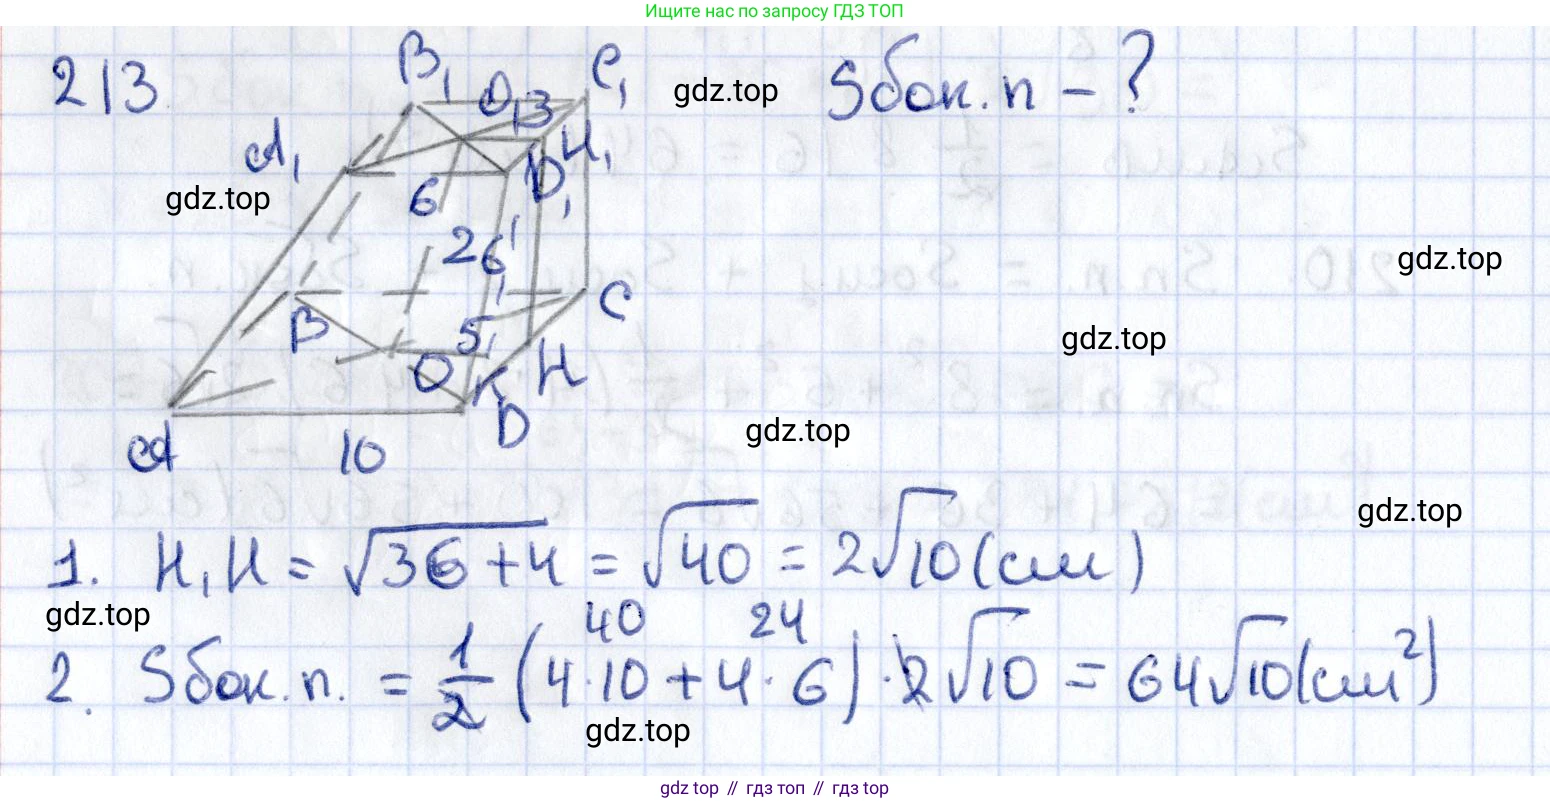 Ищите нас по запросу ГДЗ ТОП
213.
B₁ O₁ 3 C₁
Sбок.п - ?
gdz.top
A₁ H₁
D₁
gdz.top
6
2
6
gdz.top
B C
5
gdz.top
O K H
A 10 D
gdz.top
gdz.top
1. H₁H = √36+4 = √40 = 2√10 (см)
gdz.top
40 24
2. Sбок.п. = 1/2 (4·10 + 4·6) · 2√10 = 64√10 (см²)
gdz.top
gdz top // гдз топ // гдз top